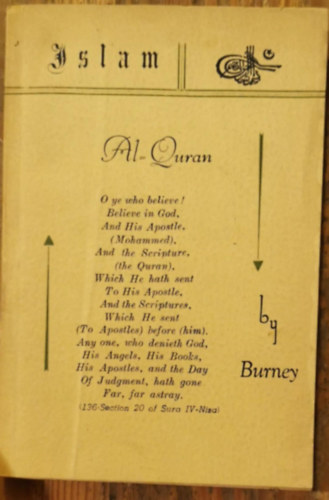 Islam
Al-Quran
O ye who believe!
Believe in God,
And His Apostle,
(Mohammed),
And the Scripture,
(the Quran),
Which He hath sent
To His Apostle,
And the Scriptures,
Which He sent
(To Apostles) before (him).
Any one, who denieth God,
His Angels, His Books,
His Apostles, and the Day
Of Judgment, hath gone
Far, far astray.
(136-Section 20 of Sura IV-Nisa)
by
Burney